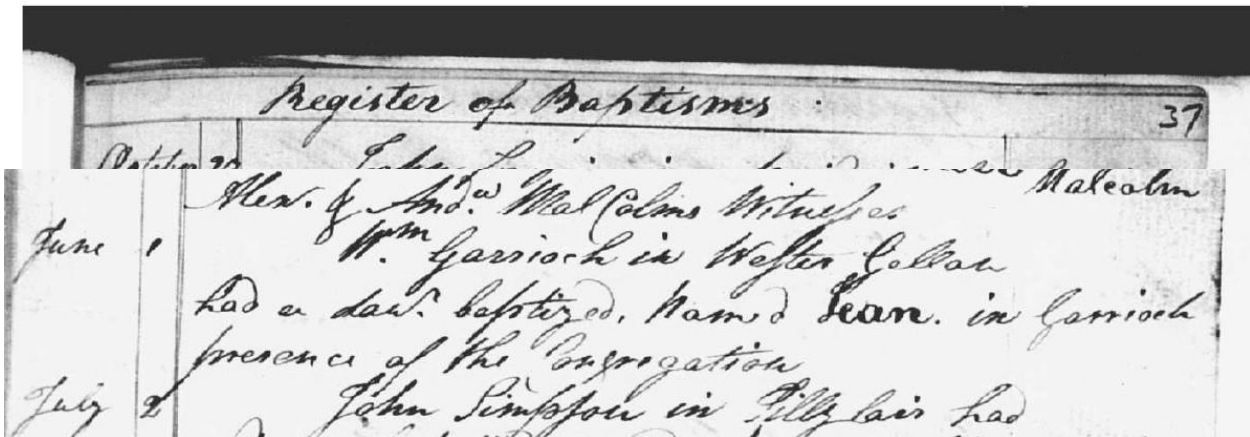 Register of Baptisms 37
October 20 John
Malcolm
Alexr. & Andw. MalColms Witnesses
June 1 Wm Garrioch in Wester Collau
had a dawr. baptized, Named Jean. in Garrioch
presence of the Congregation
July 2 John Simpson in Tillylair had